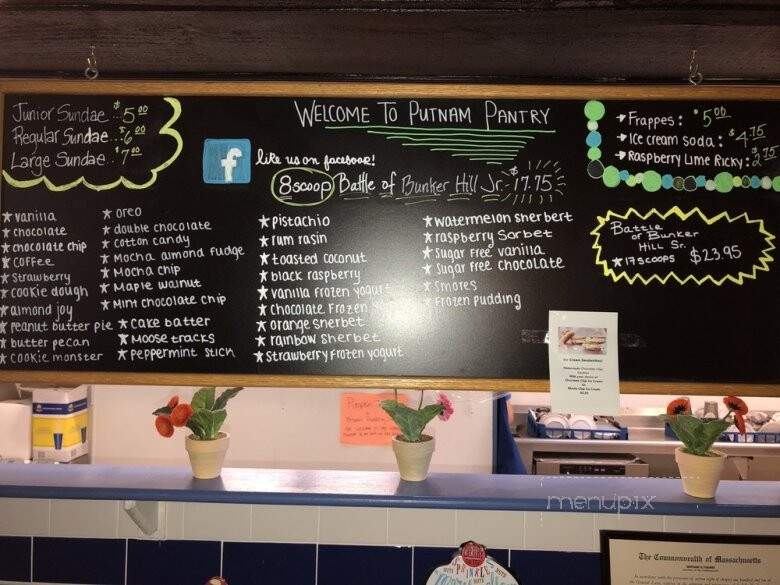 Junior Sundae...$5.00
Regular Sundae...$6.00
Large Sundae...$7.00
WELCOME TO PUTNAM PANTRY
f
like us on facebook!
8 scoop Battle of Bunker Hill Jr. $17.75
→ Frappes: $5.00
→ Ice cream soda: $4.75
→ Raspberry Lime Ricky: $2.75
Battle
of Bunker
Hill Sr.
★ 17 scoops $23.95
★ vanilla
★ chocolate
★ chocolate chip
★ COFFEE
★ Strawberry
★ cookie dough
★ almond joy
★ peanut butter pie
★ butter pecan
★ cookie monster
★ oreo
★ double chocolate
★ cotton candy
★ Mocha almond fudge
★ Mocha chip
★ Maple walnut
★ Mint chocolate chip
★ cake batter
★ Moose tracks
★ peppermint stick
★ pistachio
★ rum rasin
★ toasted coconut
★ black raspberry
★ vanilla frozen yogurt
★ chocolate Frozen
★ orange sherbet
★ rainbow sherbet
★ strawberry frozen yogurt
★ watermelon sherbert
★ raspberry sorbet
★ Sugar Free vanilla
★ Sugar free chocolate
★ Smores
★ Frozen pudding
Ice Cream Sandwiches!
Chocolate Chip Ice Cream
or
Mocha Chip Ice Cream
Pumpkin
menupix
The Commonwealth of Massachusetts